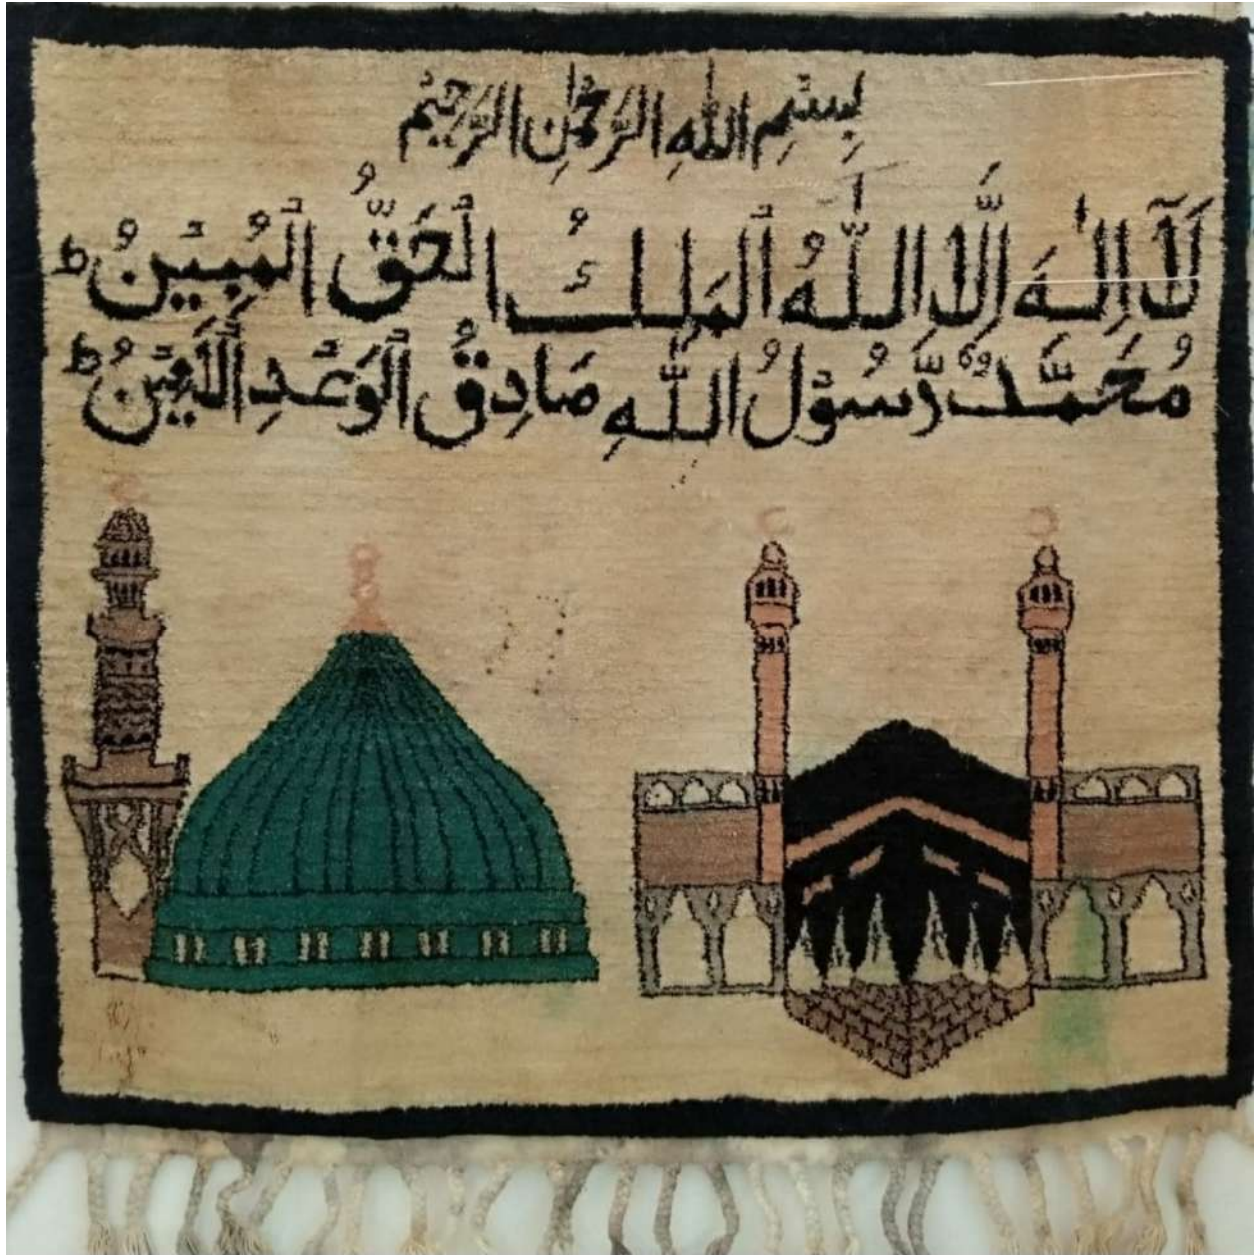 بِسْمِ اللهِ الرَّحْمٰنِ الرَّحِيْمِ
لَآ اِلٰهَ اِلَّا اللّٰهُ الْمَلِكُ الْحَقُّ الْمُبِيْنُ ط
مُحَمَّدٌ رَّسُوْلُ اللّٰهِ صَادِقُ الْوَعْدِ الْاَمِيْنُ ط